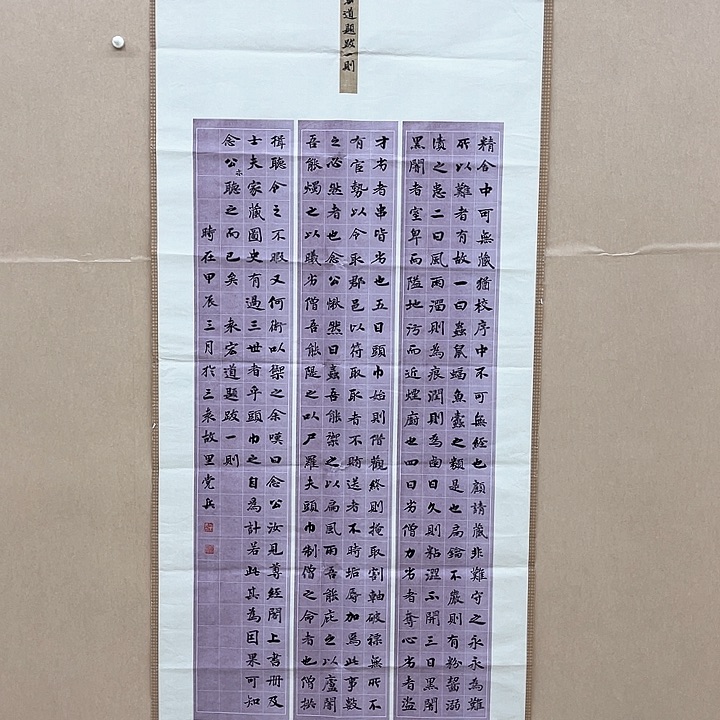 宏道題跋一則
精舍中可無藏猶校序中不可無經也顧請藏非難守之永永為難
所以難者有故一曰蟲鼠蝠魚蠹之類是也扃鑰不嚴則有粉齧溺
漬之患二曰風雨濕則為痕潤則為鹵日久則粘濕不開三曰黑闇
黑闇者室卑而隘地污而近煙廚也四曰劣僧力劣者奪心劣者盜
才劣者串皆劣也五曰頭巾始則借觀終則掩取割軸破褾無所不
有官勢以令取郡邑以符取取者不時送者不時垢辱加焉此事數
之必然者也念公愀然曰蟲吾能架之以扃風雨吾能庇之以廬闇
吾能燭之以曦劣僧吾能隄之以尸羅夫頭巾制僧之命者也僧拱
楫聽令之不暇又何術以禦之余嘆曰念公汝見尊經閣上書冊及
士夫家藏圖史有過三世者乎頭巾之自為計若此其為因果可知
念公亦聽之而已矣 袁宏道題跋一則
時在甲辰三月於三袁故里党兵